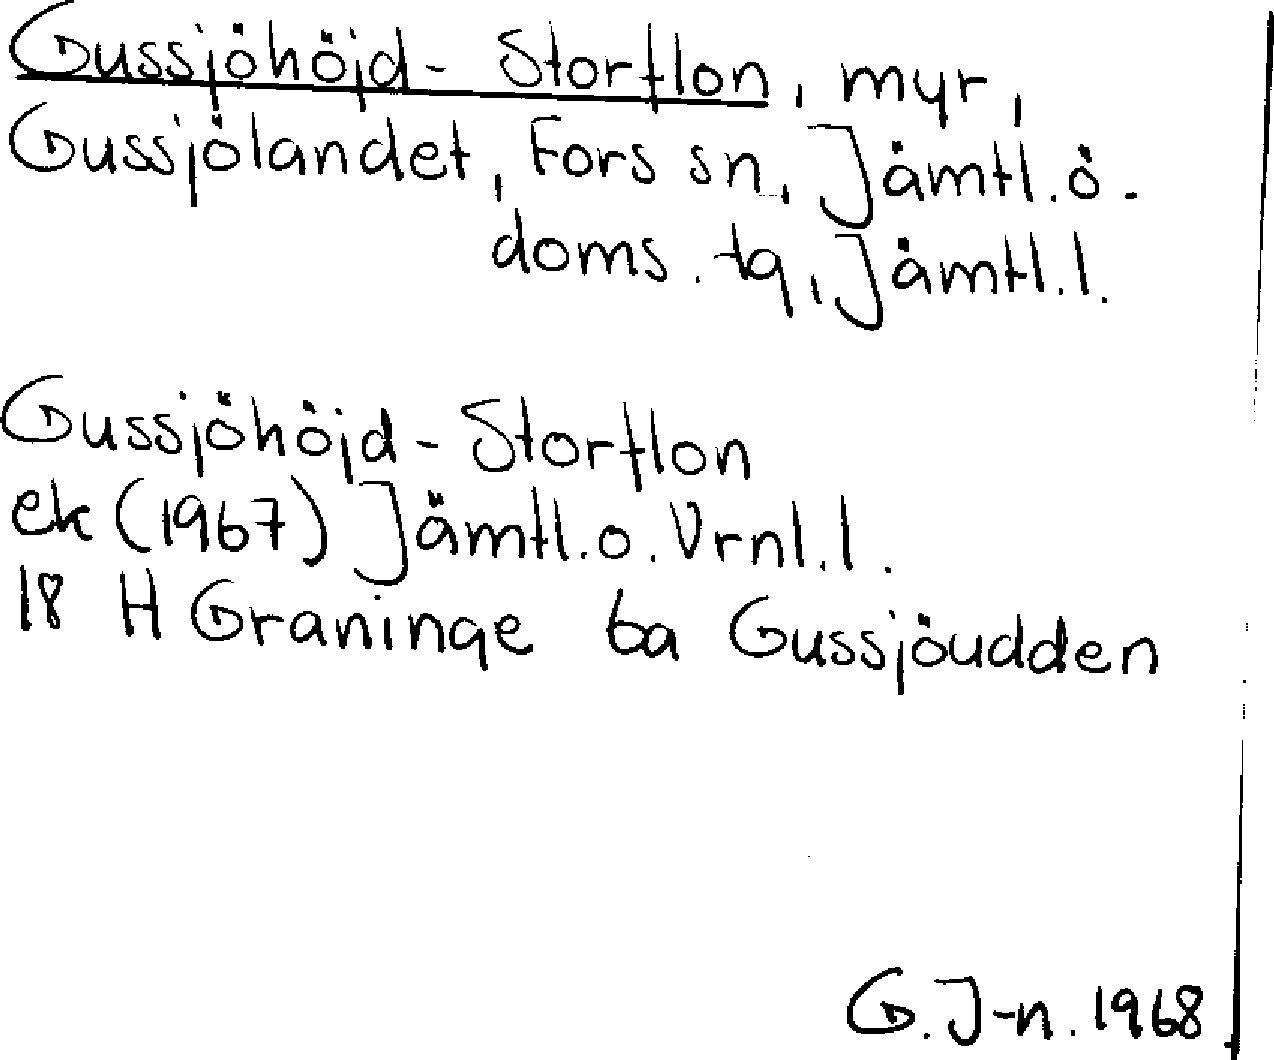 Gussjöhöjd-Storflon, myr,
Gussjölandet, Fors sn, Jämtl. ö.
doms. tg, Jämtl. l.
Gussjöhöjd-Storflon
ek (1967) Jämtl. o. Vrnl. l.
18 H Graninge 6a Gussjöudden
G. J-n. 1968